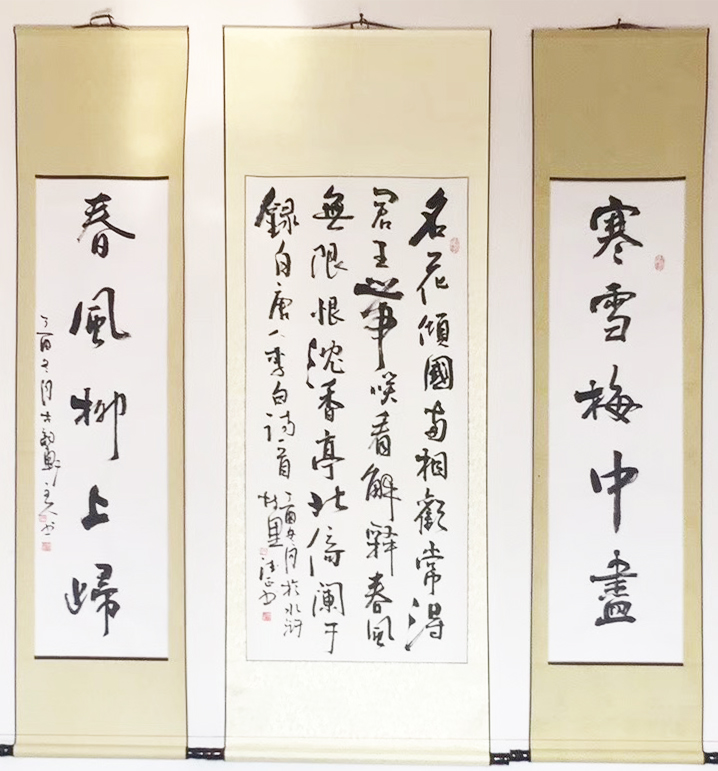 寒雪梅中盡
名花傾國兩相歡常得
君王帶咲看解釋春風
無限恨沈香亭北倚闌干
錄自唐人李白詩一首
丁酉冬月於水滸
春風柳上歸
丁酉冬月
主人书